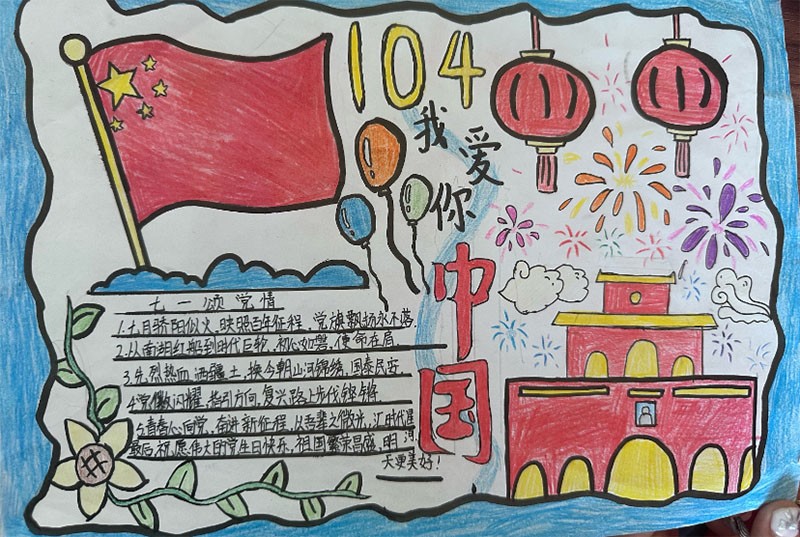 104
我爱你
中国
七一颂党情
1.七月骄阳似火,映照百年征程,党旗飘扬永不落.
2.从南湖红船到时代巨轮,初心如磐,使命在肩.
3.先烈热血洒疆土,换今朝山河锦绣,国泰民安.
4.党徽闪耀,指引方向,复兴路上步伐铿锵.
5.青春心向党,奋进新征程,以吾辈之微光,汇时代星河,
最后祝愿伟大的党生日快乐,祖国繁荣昌盛,明
天更美好!